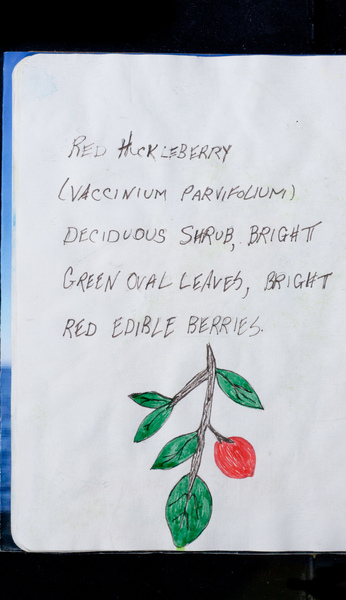 RED HUCKLEBERRY
(VACCINIUM PARVIFOLIUM)
DECIDUOUS SHRUB, BRIGHT
GREEN OVAL LEAVES, BRIGHT
RED EDIBLE BERRIES.